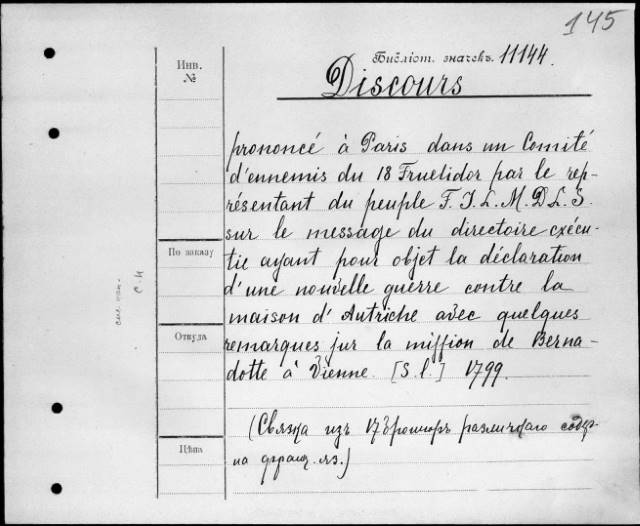 145
Библіот. значекъ. 11144.
Инв.
№
Discours
prononcé à Paris dans un Comité
d'ennemis du 18 Fruelidor par le rep-
résentant du peuple F. J. L. M. D. L. S.
sur le message du directoire exécu-
По заказу
tie ayant pour objet la déclaration
d'une nouvelle guerre contre la
maison d'Autriche avec quelques
Откуда
remarques jur la miffion de Berna-
dotte à Vienne. [S. l.] 1799.
(Связка изъ 17 брошюръ различнаго содер-
Цѣна
на франц. яз.)